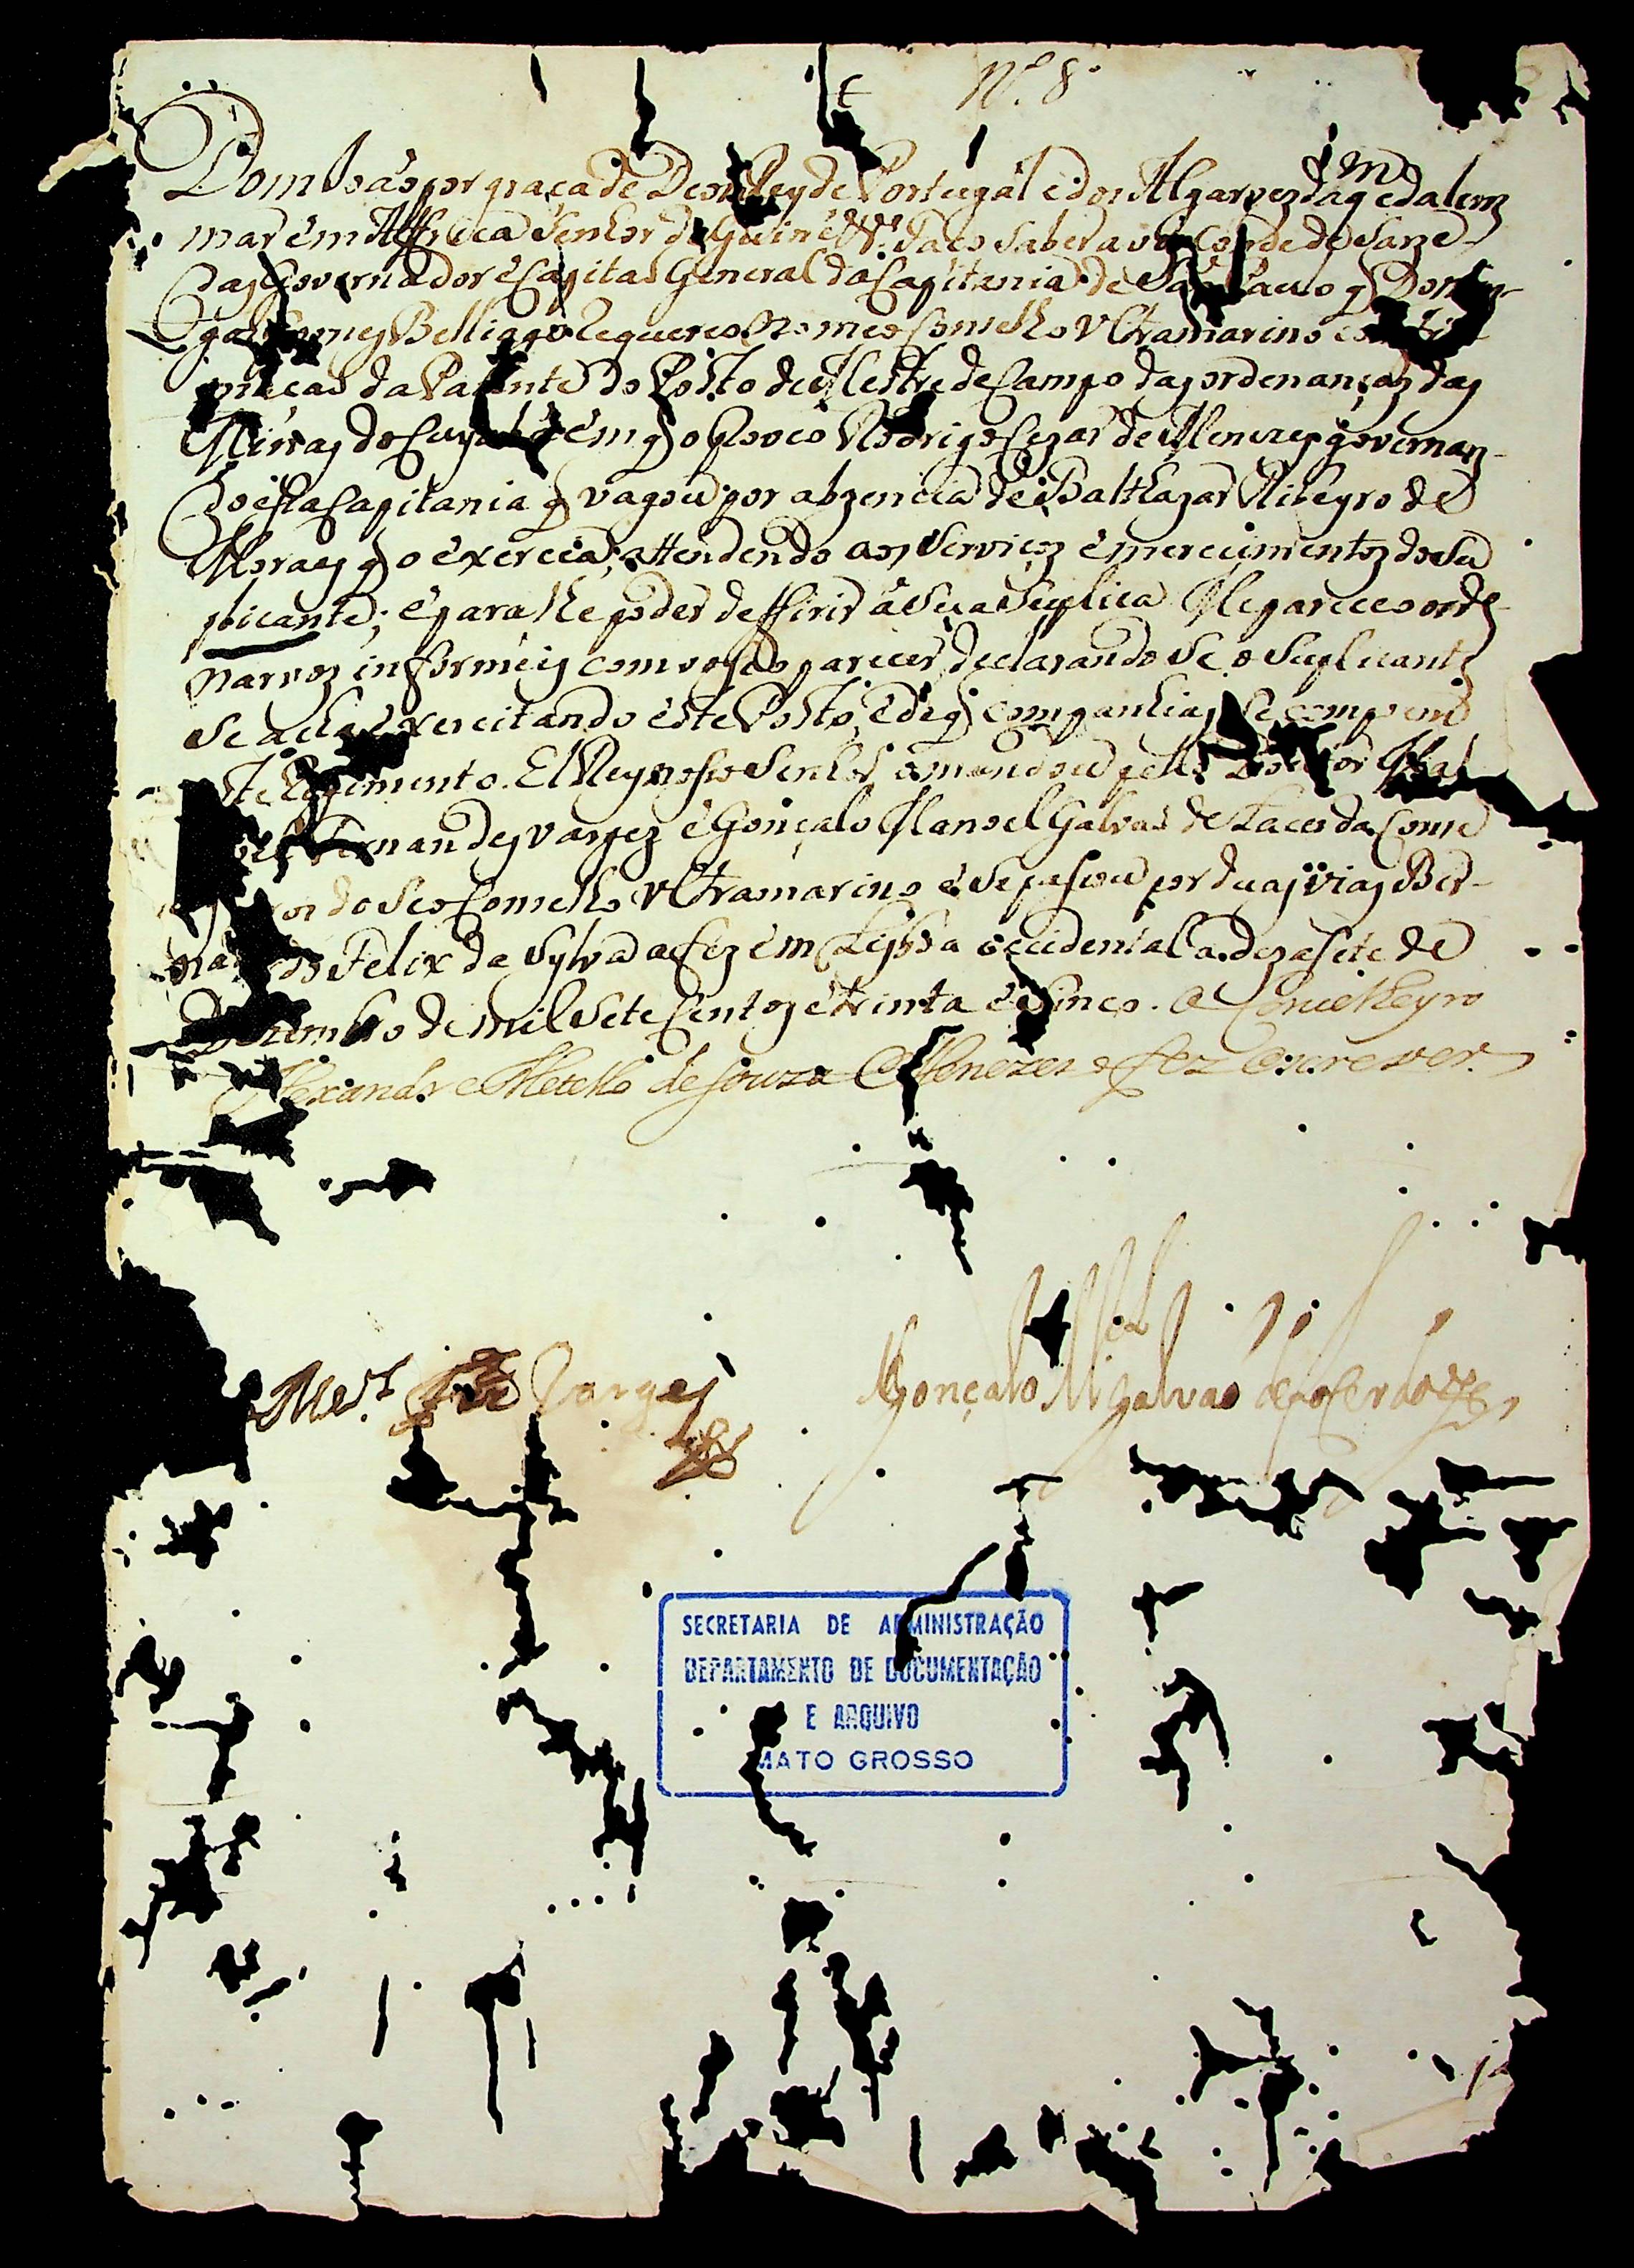 N.º 8.
Dom João por graça de Deos Rey de Portugal e dos Algarves daq̃ e dalem
mar em Affrica Senhor de Guine &.ª Faço saber a vos Conde de Sarze-
das Governador e Capitão General da Capitania de São Paulo q̃ Domin-
gos Gomes Belliago requereo no meo Conselho Ultramarino confir-
mação da Patente do Posto de Mestre de Campo das ordenanças das
Minas do Cuyabá em q̃ o proveo Rodrigo Cezar de Menezes governan-
do essa Capitania q̃ vagou por abzencia de Balthazar Ribeyro de
Moraes q̃ o exercia; attendendo aos serviços e merecimentos do su
plicante; e para lhe poder defferir á sua suplica Me pareceo orde-
narvos informeis com vosso parecer declarando se o suplicante
se acha exercitando este Posto, e de q̃ companhias se compoem
este Regimento. El Rey nosso Senhor o mandou pello Doutor
Fernandes Varges e Gonçalo Manoel Galvão de Lacerda Conse
lheyros do seo Conselho Ultramarino e se passou por duas vias Ber-
nardo Felix da Sylva a fez em Lisboa occidental a dezasete de
Dezembro de mil sete centos e trinta e sinco. O Conselheyro
Alexandre Metello de Souza e Menezes o fez escrever.
Varges
Gonçalo M.el Galvão de Lacerda
SECRETARIA DE ADMINISTRAÇÃO
DEPARTAMENTO DE DOCUMENTAÇÃO
E ARQUIVO
MATO GROSSO